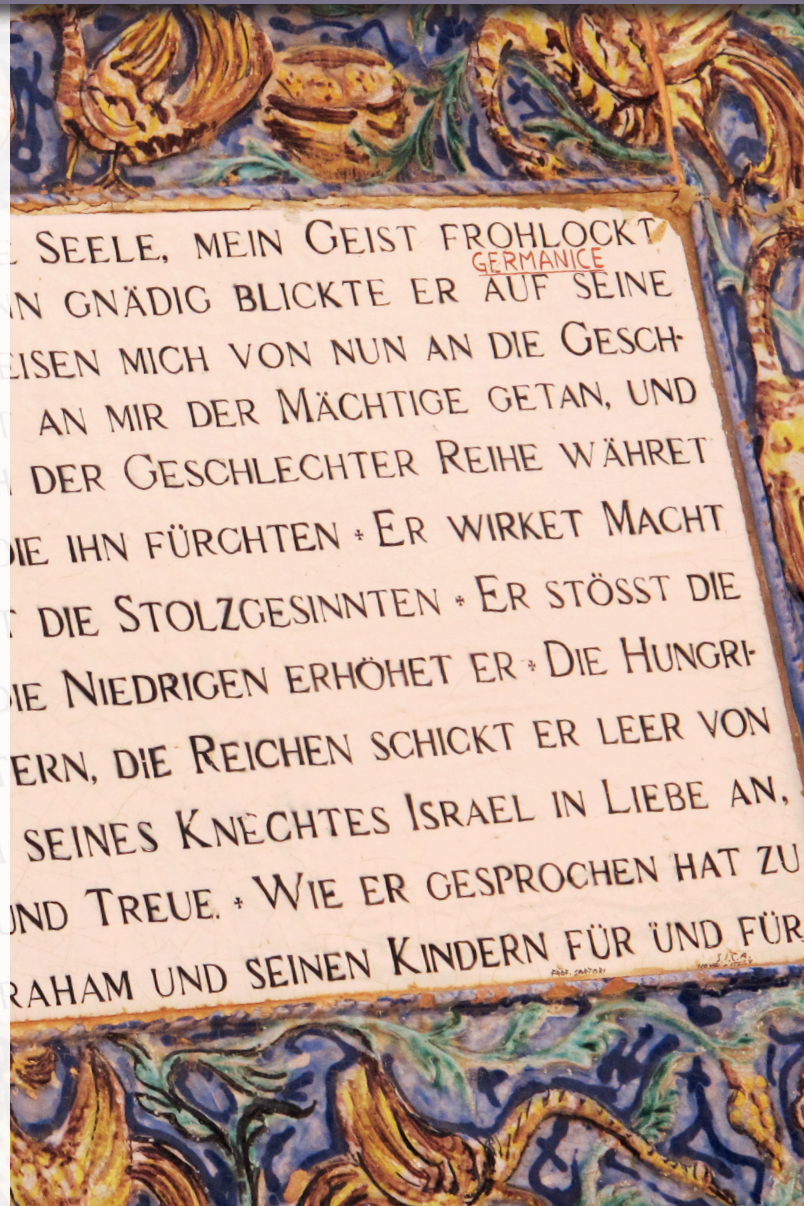 SEELE, MEIN GEIST FROHLOCKT
GERMANICE
GNÄDIG BLICKTE ER AUF SEINE
EISEN MICH VON NUN AN DIE GESCH-
AN MIR DER MÄCHTIGE GETAN, UND
DER GESCHLECHTER REIHE WÄHRET
DIE IHN FÜRCHTEN * ER WIRKET MACHT
DIE STOLZGESINNTEN * ER STÖSST DIE
DIE NIEDRIGEN ERHÖHET ER * DIE HUNGRI-
ERN, DIE REICHEN SCHICKT ER LEER VON
SEINES KNECHTES ISRAEL IN LIEBE AN,
UND TREUE. * WIE ER GESPROCHEN HAT ZU
RAHAM UND SEINEN KINDERN FÜR UND FÜR